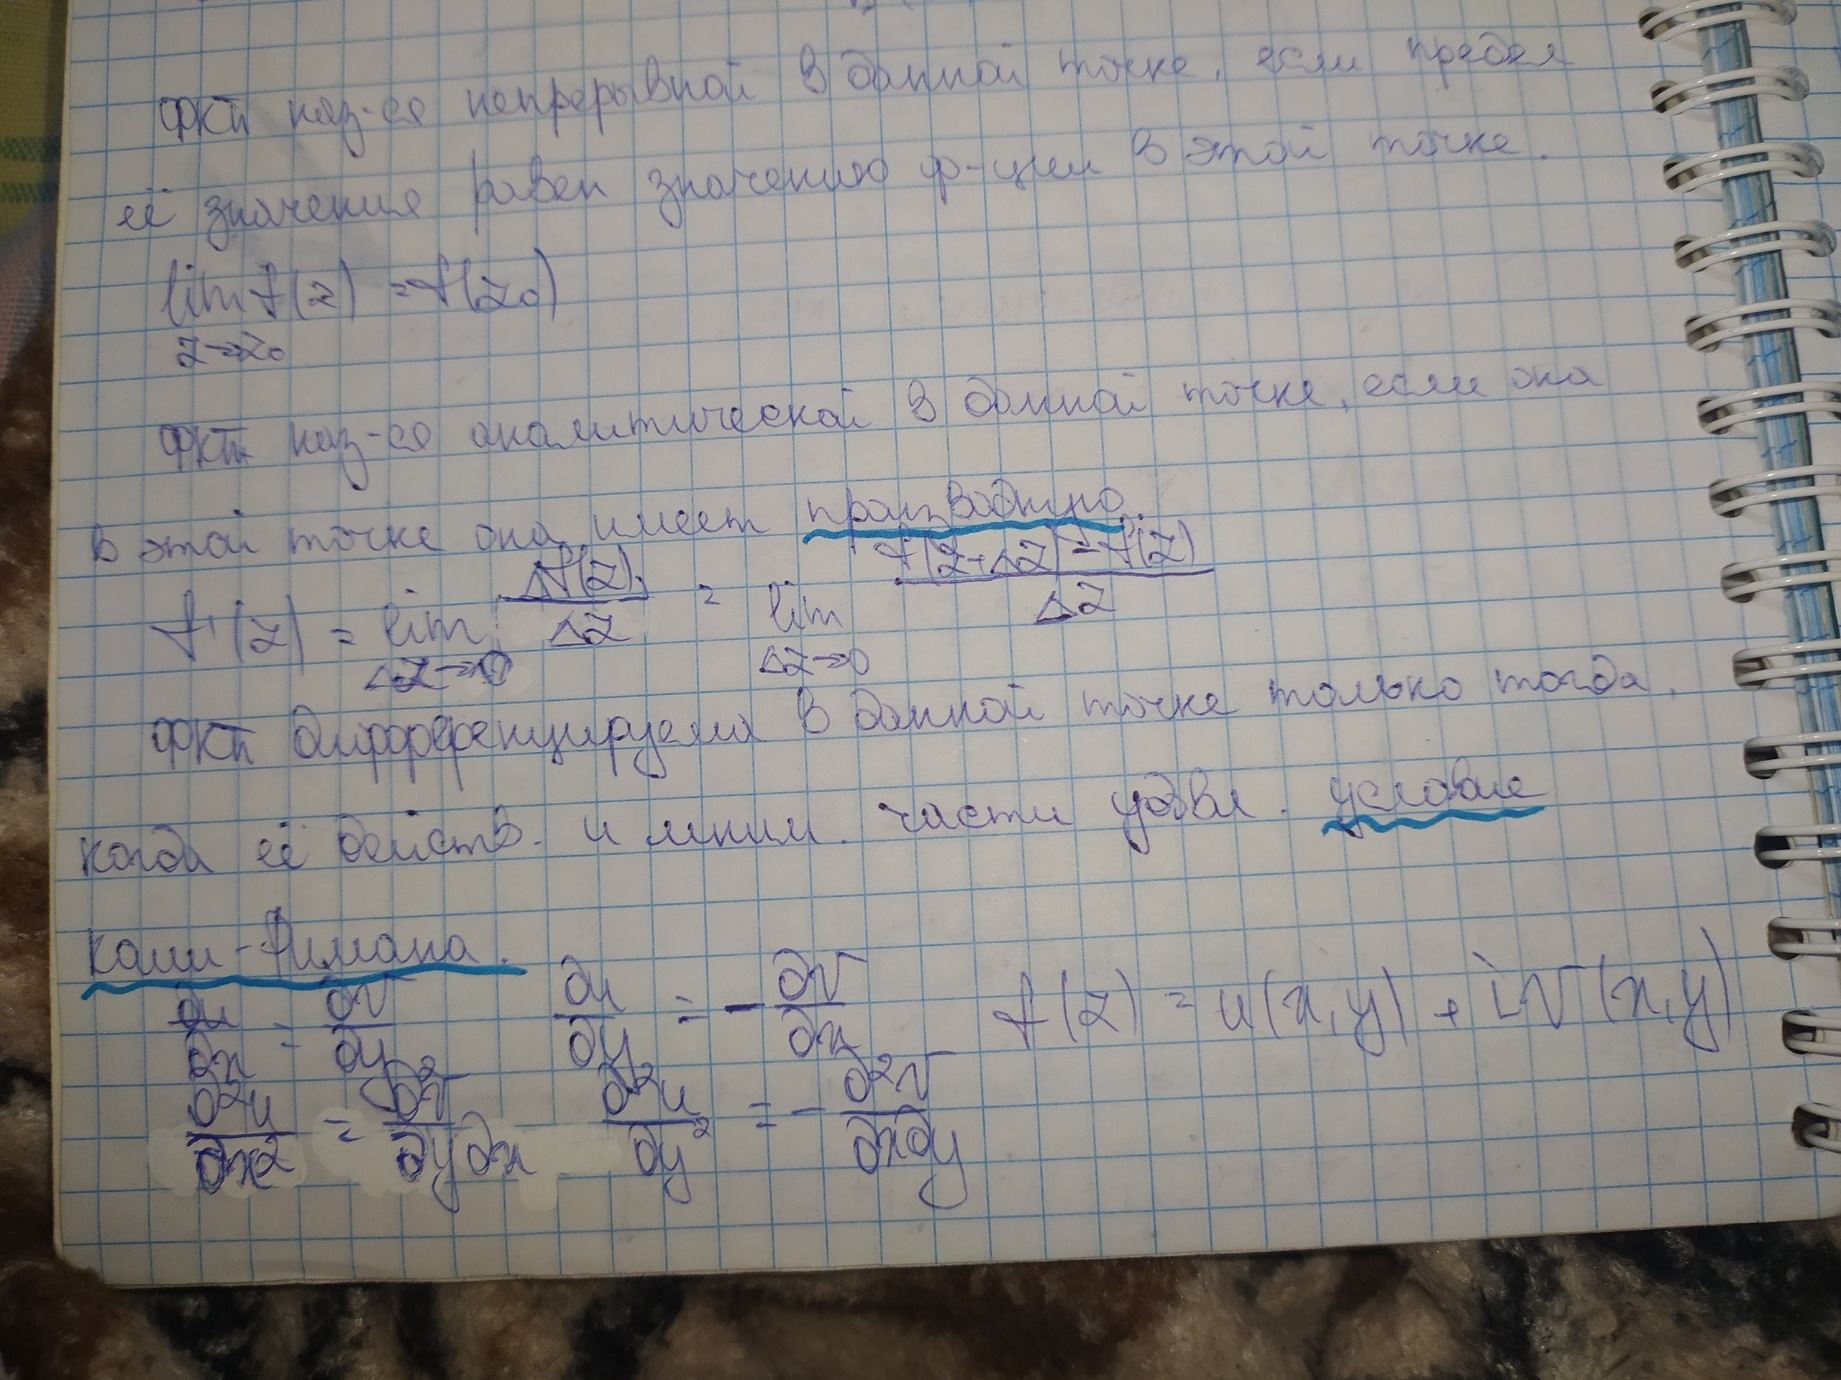 ФКП наз-ся непрерывной в данной точке, если предел
её значения равен значению ф-ции в этой точке.
lim f(z) = f(z₀)
z→z₀
ФКП наз-ся аналитической в данной точке, если она
в этой точке она имеет производную.
f'(z) = lim Δf(z)/Δz = lim f(z+Δz)-f(z)/Δz
Δz→0 Δz→0
ФКП дифференцируема в данной точке только тогда,
когда её действ. и мним. части удовл. условие
Коши-Римана.
∂u/∂x = ∂v/∂y ∂u/∂y = -∂v/∂x f(z) = u(x,y) + iv(x,y)
∂²u/∂x² = ∂²v/∂y∂x ∂²u/∂y² = -∂²v/∂x∂y